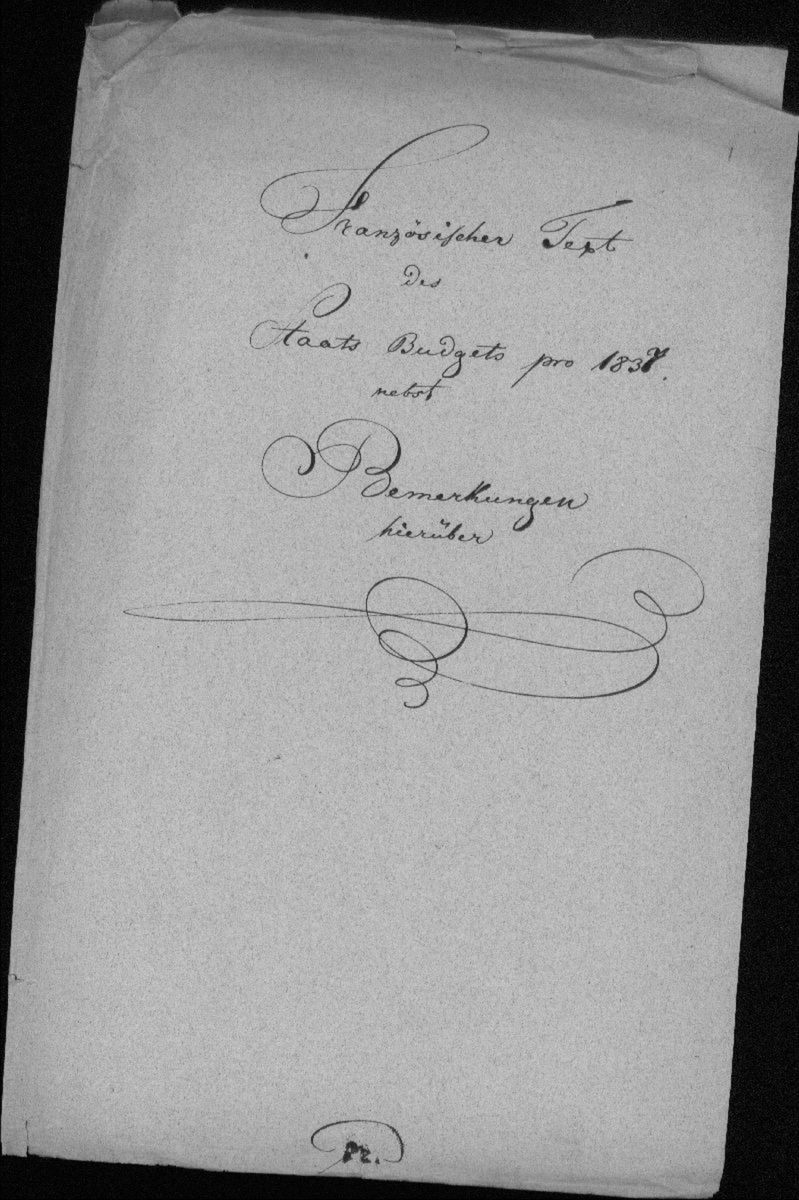 Französischer Text
des
Staats Budgets pro 1837.
nebst
Bemerkungen
hierüber